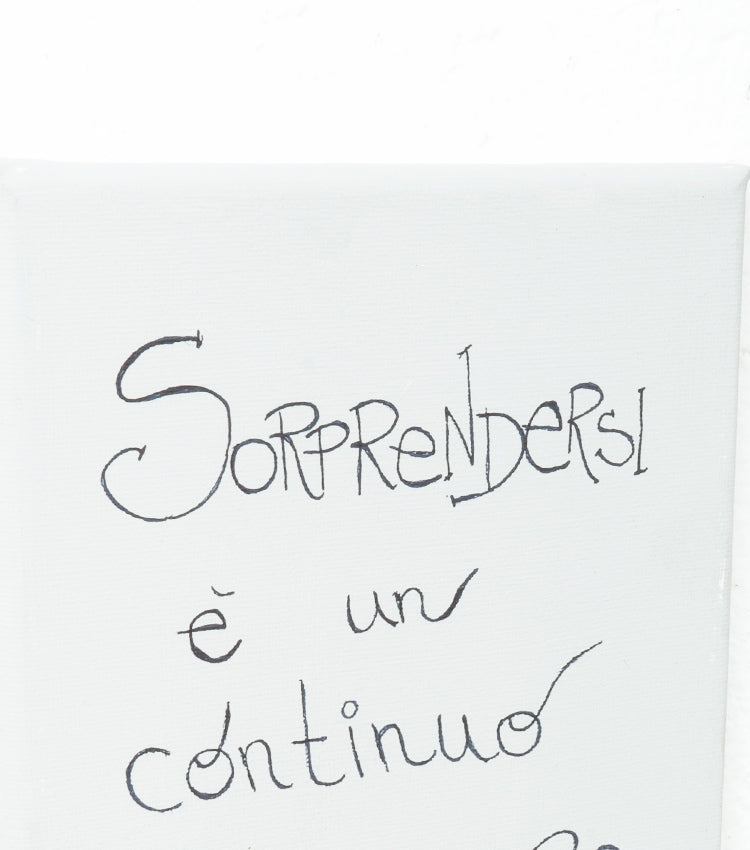 SORPRENDERSI
è un
continuo